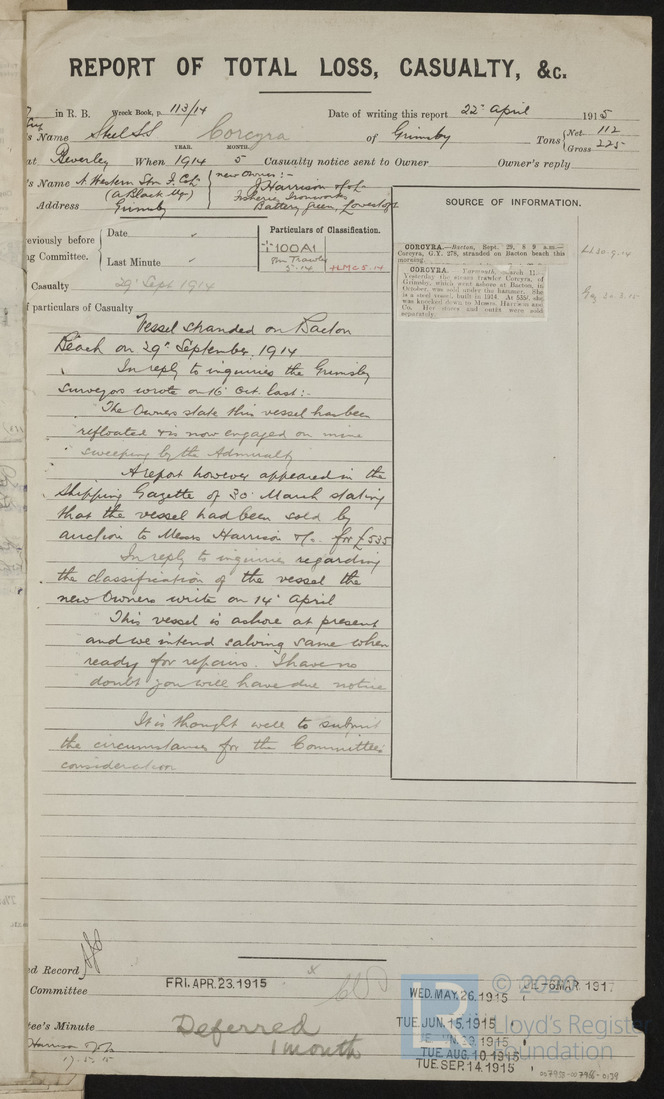 REPORT OF TOTAL LOSS, CASUALTY, &c.
in R. B. Wreck Book, p. 113/14 Date of writing this report 22nd April 1915
's Name Steel SS Corcyra of Grimsby Tons { Net 112 Gross 225
at Beverley When YEAR. 1914 MONTH. 5 Casualty notice sent to Owner Owner's reply
's Name A. Western Stm F. Co Ld { new owner :-
(A Black Mgr) J Harrison
Address Grimsby Fisheries Ironworks
Battery Green, Lowestoft
SOURCE OF INFORMATION.
eviously before
ng Committee.
Date "
Last Minute "
Particulars of Classification.
+100A1
Stm Trawler
5.14 +LMC 5.14
Casualty 29th Sept 1914
f particulars of Casualty
CORCYRA.—Bacton, Sept. 29, 8 9 a.m.—
Corcyra, G.Y. 278, stranded on Bacton beach this
morning.
LL 30.9.14
CORCYRA. Yarmouth, March 11.—
Yesterday the steam trawler Corcyra, of
Grimsby, which went ashore at Bacton, in
October, was sold under the hammer. She
is a steel vessel, built in 1914. At 535l. she
was knocked down to Messrs. Harrison and
Co. Her stores and outfit were sold
separately.
Vessel stranded on Bacton
Beach on 29th September 1914
In reply to inquiries the Grimsby
Surveyors wrote on 16th Oct. last :-
The Owners state this vessel has been
refloated & is now engaged on mine
sweeping by the Admiralty
A report however appeared in the
Shipping Gazette of 30th March stating
that the vessel had been sold by
auction to Messrs Harrison & Co. for £535
In reply to inquiries regarding
the classification of the vessel the
new Owners write on 14th April
This vessel is ashore at present
and we intend salving same when
ready for repairs. I have no
doubt you will have due notice
It is thought well to submit
the circumstances for the Committee's
consideration
ed Record
Committee FRI. APR. 23. 1915
WED. MAY. 26. 1915
6 MAR 1917
tee's Minute Deferred
1 month
TUE. JUN. 15. 1915
TUE. AUG. 10. 1915
TUE. SEP. 14. 1915
© 2020
Lloyd's Register
Foundation
LR
007953-007956-0139